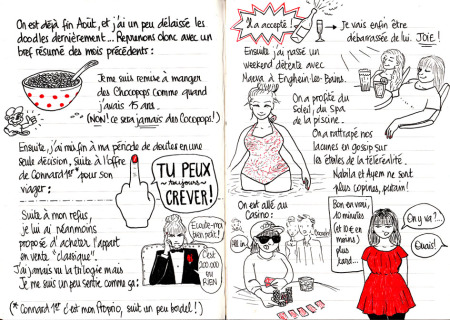 On est déjà fin Août, et j'ai un peu délaissé les
doodles dernièrement... Reprenons donc avec un
bref résumé des mois précédents :
Je me suis remise à manger
des Chocopops comme quand
j'avais 15 ans.
(NON! ce sera jamais des Cocopops!)
Ensuite, j'ai mis fin à ma période de doutes en une
seule décision, suite à l'offre
de Connard 1er* pour son
viager :
TU PEUX
~ toujours ~
CRÉVER!
Suite à mon refus,
je lui ai néanmoins
proposé d'acheter l'appart
en vente "classique".
J'ai jamais vu la trilogie mais
Je me suis un peu sentie comme ça :
Écoute-moi
bien petit!
C'est
200.000
ou
RIEN
(* Connard 1er c'est mon Proprio, suit un peu bordel!)
Il a accepté!
Je vais enfin être
débarrassée de lui. JOIE!
Ensuite j'ai passé un
weekend détente avec
Maeva à Enghein-les-Bains.
On a profité du
soleil, du Spa
de la piscine.
On a rattrapé nos
lacunes en gossip sur
les étoiles de la téléréalité.
Nabila et Ayem ne sont
plus copines, putain!
On est allé au
Casino :
All in
Bon en vrai,
10 minutes
(et 10€ en
moins)
plus
tard...
On y va?
Ouais!